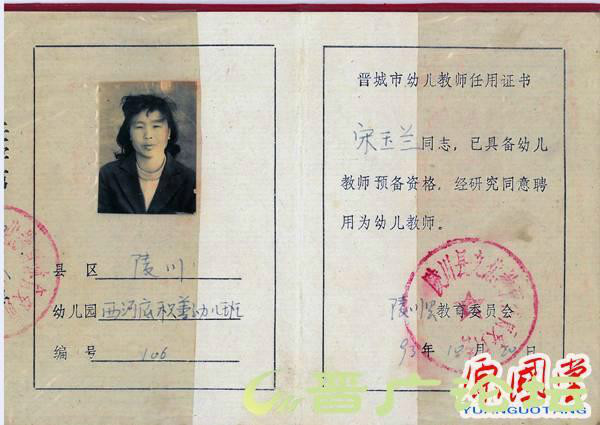 县 区 陵川
幼儿园 西河底积善幼儿班
编 号 106
晋城市幼儿教师任用证书
宋玉兰同志，已具备幼儿
教师预备资格，经研究同意聘
用为幼儿教师。
陵川县教育委员会
93年12月20日
晋广论坛
YUANGUOTANG